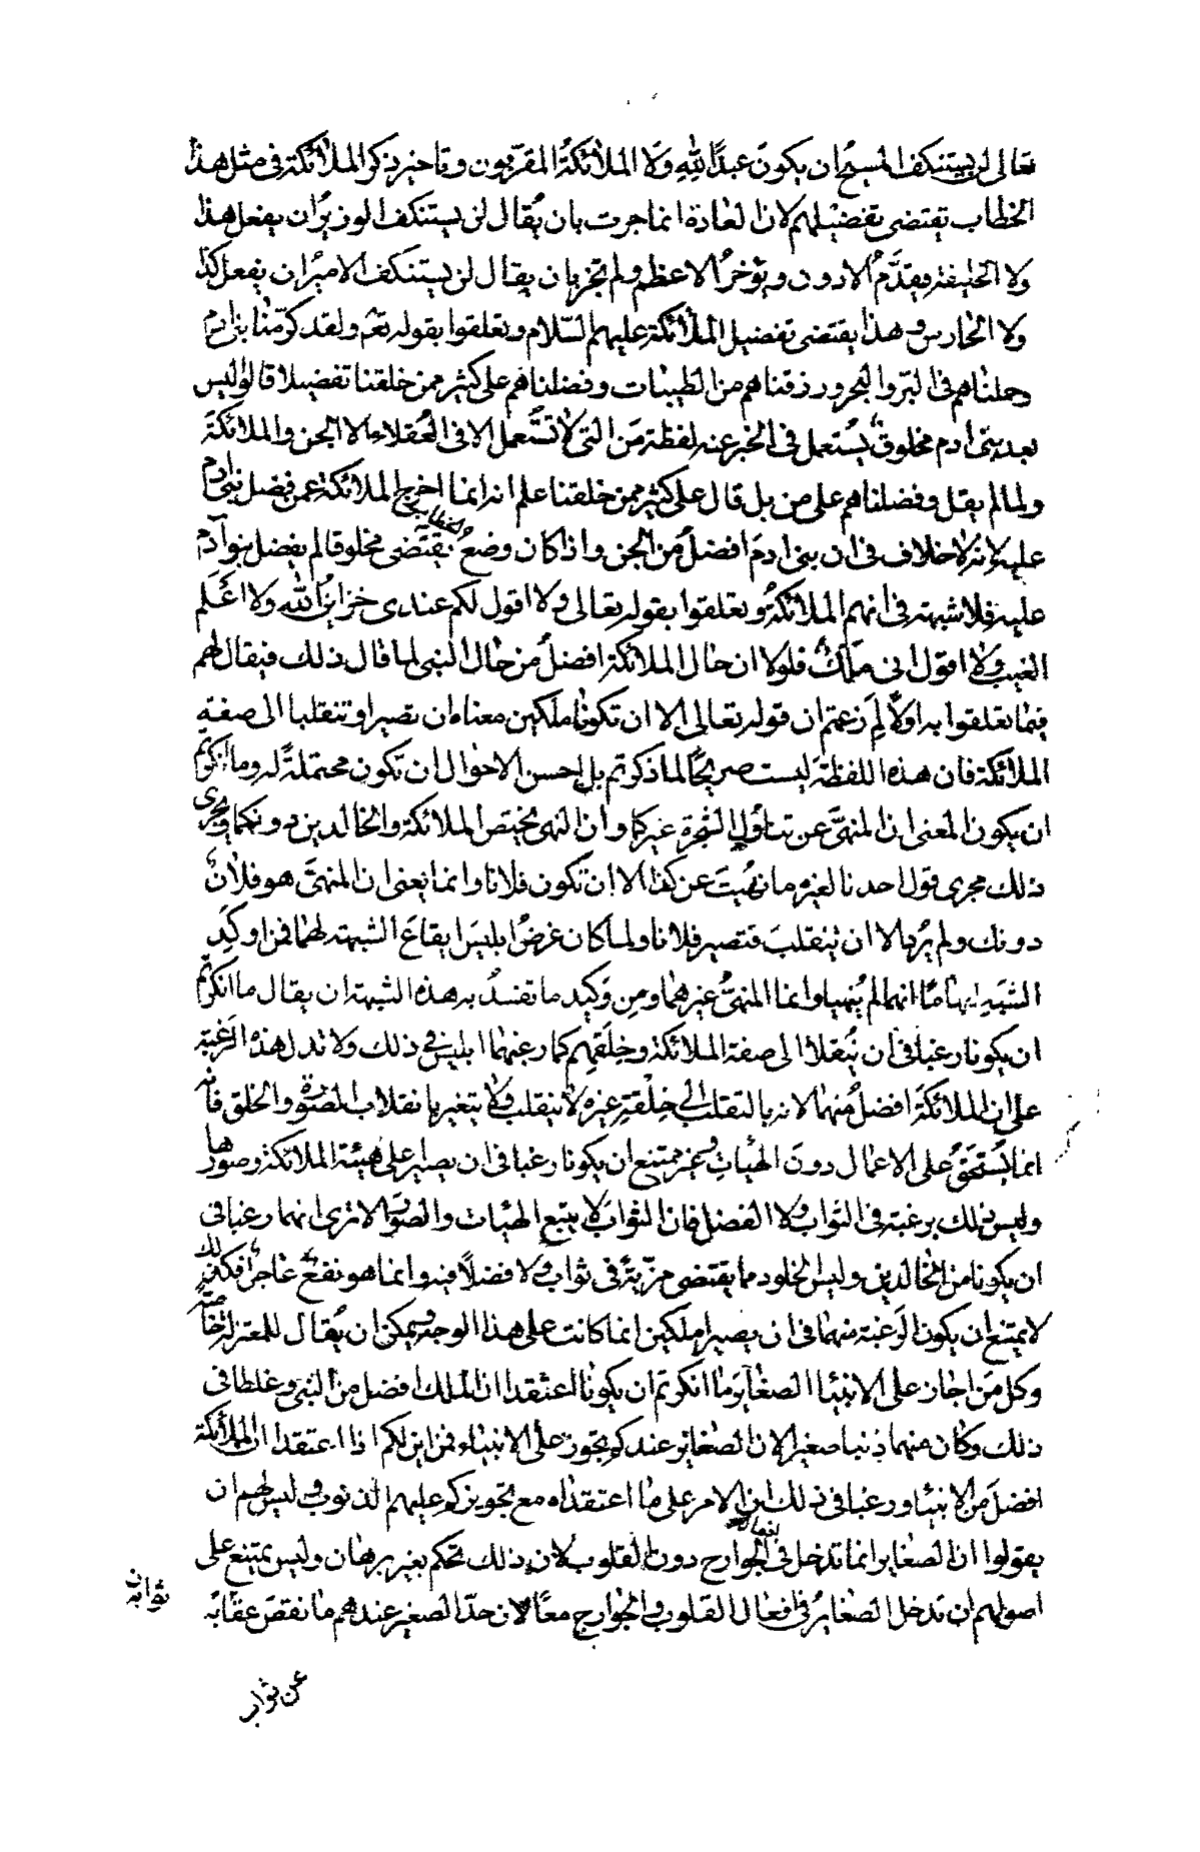 تعالى لن يستنكف المسيح ان يكون عبدًا لله ولا الملائكة المقربون وتاخير ذكر الملائكة فى مثل هذا
الخطاب يقتضى تفضيلهم لان العادة انما جرت بان يُقال لن يستنكف الوزير ان يفعل هذا
ولا الخليفة فيقدَّم الادون ويؤخر الاعظم ولم تجر بان يقال لن يستنكف الامير ان يفعل كذا
ولا الحارس وهذا يقتضى تفضيل الملائكة عليهم السّلام وتعلقوا بقوله تعٰ ولقد كرّمنا بنى ادم
وحملناهم فى البرّ والبحر ورزقناهم من الطيبات وفضلناهم على كثير ممن خلقنا تفضيلا قالوا وليس
بعد بنى ادم مخلوق يُستعمل فى الخبر عنه لفظة مَن التى لا تستعمل الا فى العُقلاء الا الجن والملائكةَ
ولما لم يقل وفضلناهم على من بل قال على كثير ممن خلقنا علم انه انما اخرج الملائكة عمن فضل بنى ادم
عليه لانه لا خلاف فى ان بنى ادمَ افضلُ من الجن واذا كان وضعُ الخطاب يقتضى مخلوقا لم يفضل بنو آدم
عليه فلا شبهة فى انهم الملائكةُ وتعلقوا بقوله تعالى ولا اقول لكم عندى خزاين الله ولا اعَلم
الغيب ولا اقول انى ملكٌ فلولا ان حال الملائكة افضلُ من حال النبى لما قال ذلك فيقال لهم
فيما تعلقوا به اولاً لِم زعمتم ان قوله تعالى الا ان تكونا ملكين معناه ان تصيرا وتنقلبا الى صفة
الملائكة فان هذه اللفظة ليست صريحًا لما ذكرتم بل احسن الاحوال ان تكون محتملةً له وما انكرتم
ان يكون المعنى ان المنهىَّ عن تناوُل الشجرة غيركما وان النهى يختص الملائكة والخالدين دونكما ويجرى
ذلك مجرى قول احدنا لغيره ما نُهيتَ عن كذا الا ان تكون فلانا وانما يعنى ان المنهىَّ هو فلانٌ
دونك ولم يُرد الا ان ينقلبَ فتصير فلانا ولما كان غرضُ ابليسَ ايقاعَ الشبهة لهما فمن اوكَدِ
الشبه ايهامُا انهما لم يُنهيا وانما المنهىُّ غيرهما ومن وَكِيد ما تفسدُ به هذه الشبهة ان يقال ما انكرتم
ان يكونا رغبا فى ان يُنقلا الى صفة الملائكة وخِلَقهم كما رغبهما ابليس فى ذلك ولا تدل هذه الرَغبة
على ان الملائكةَ افضلُ منهما لانه بالتقلب الى خِلْقةِ غيره لا ينقلب ولا يتغير بانقلاب الصورة والخلق فانه
انما يُستحقُّ على الاعمال دونَ الهيأتِ وغير ممتنع ان يكونا رغبا فى ان يصيرا على هيئة الملائكة وصورها
وليس ذلك برغبة فى الثواب ولا الفضل فان الثوابَ لا يتبع الهيئات والصورَ الا ترى انهما رغبا فى
ان يكونا من الخالدين وليس الخلود مما يقتضى مزيّةً فى ثوابٍ ولا فضلاً فيه وانما هو نفعٌ عاجلٌ فكذلك
لا يمتنع ان يكون الرَغبة منهما فى ان يصيرا ملكين انما كانت على هذا الوجه ويمكن ان يُقال للمعتزلة خاصّةً
وكل مَن اجاز على الانبيا الصغايرَ ما انكرتم ان يكونا اعتقدا ان الملك افضل من النبى وغلطا فى
ذلك وكان منهما ذنبا صغيرا لان الصغاير عندكم تجوز على الانبياء فمن اين لكم اذا اعتقدا ان الملائكة
افضلَ من الانبياء ورغبا فى ذلك ان الامر على ما اعتقداه مع تجويزكم عليهم الذنوب وليس لهم ان
يقولوا ان الصغاير انما تدخل فى افعال الجوارح دون القلوب لان ذلك تحكم بغير برهان وليس يمتنع على
اصولهم ان تدخل الصغايرُ فى افعال القلوب والجوارح معًا لان حدّ الصغير عندهم ما نقصَ عقابُه
عن ثواب